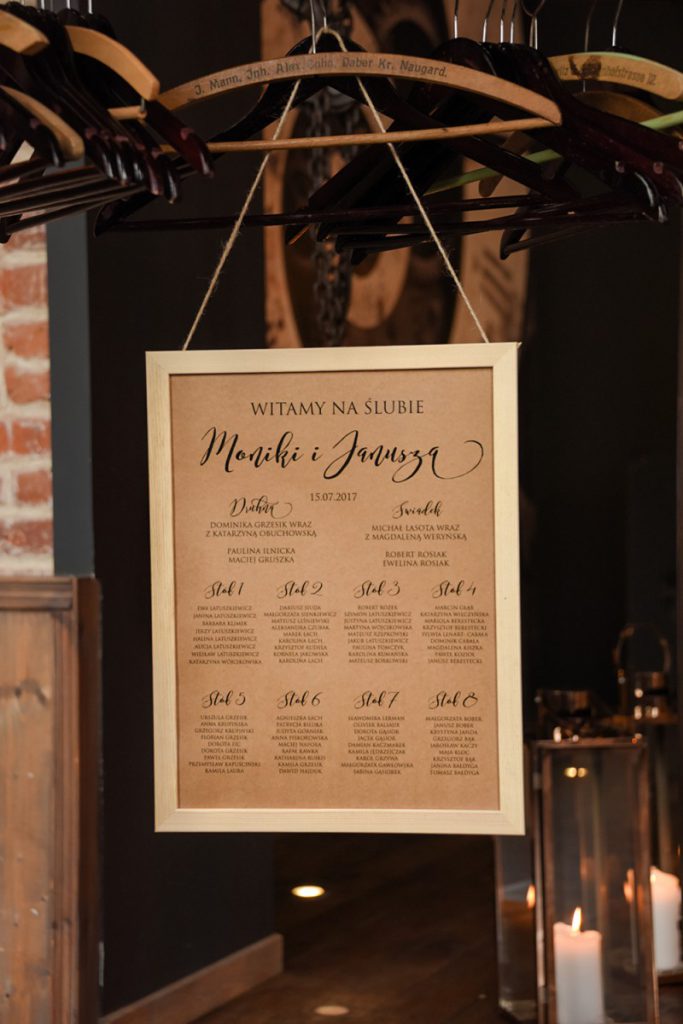 J. Mann, Jnh. Alex. Daber Kr. Naugard.
WITAMY NA ŚLUBIE
Moniki i Janusza
15.07.2017
Druhna
DOMINIKA GRZESIK WRAZ
Z KATARZYNĄ OBUCHOWSKĄ
PAULINA ILNICKA
MACIEJ GRUSZKA
Świadek
MICHAŁ LASOTA WRAZ
Z MAGDALENĄ WERYŃSKĄ
ROBERT ROSIAK
EWELINA ROSIAK
Stół 1
EWA LATUSZKIEWICZ
JANINA LATUSZKIEWICZ
BARBARA KLIMEK
JERZY LATUSZKIEWICZ
HALINA LATUSZKIEWICZ
ALICJA LATUSZKIEWICZ
WIESŁAW LATUSZKIEWICZ
KATARZYNA WÓJCIKOWSKA
Stół 2
DARIUSZ SIUDA
MAŁGORZATA SIENKIEWICZ
MATEUSZ LEŚNIEWSKI
ALEKSANDRA CZUBAK
MAREK ŁACH
KAROLINA ŁACH
KRZYSZTOF KUDŁA
KORNELIA JAKOWSKA
KAROLINA LACH
Stół 3
ROBERT ROŻEK
SZYMON LATUSZKIEWICZ
JUSTYNA LATUSZKIEWICZ
MARTYNA WÓJCIKOWSKA
MATEUSZ RZEPKOWSKI
JAKUB LATUSZKIEWICZ
PAULINA TOMCZYK
KAROLINA KUMAŃSKA
MATEUSZ BORKOWSKI
Stół 4
MARCIN GŁĄB
KATARZYNA WILCZYŃSKA
MARIOLA BEREŚTECKA
KRZYSZTOF BERESTECKI
SYLWIA LENART- CARMA
DOMINIK CARMA
MAGDALENA KISZKA
PAWEŁ KOZIOŁ
JANUSZ BERESTECKI
Stół 5
URSZULA GRZESIK
ANNA KRUPIŃSKA
GRZEGORZ KRUPIŃSKI
FLORIAN GRZESIK
DOROTA ZIĆ
DOROTA GRZESIK
PAWEŁ GRZESIK
PRZEMYSŁAW KAPUŚCIŃSKI
KAMILA LAURA
Stół 6
AGNIESZKA ŁACH
PATRYCJA BIELKA
JUDYTA GÓRNIAK
ANNA PIEKOROWSKA
MACIEJ NAPORA
RAFAŁ KAWKA
KATARZYNA RUBIŚ
KAMILA GRZESIK
DAWID HAJDUK
Stół 7
SŁAWOMIRA LERMAN
OLIVIER BALIAUF
DOROTA GĄSIOR
JACEK GĄSIOR
DAMIAN KACZMAREK
KAMILA JĘDRZEJCZAK
KAROL GRZYWA
MAŁGORZATA GAWŁOWSKA
SABINA GĄSIOREK
Stół 8
MAŁGORZATA BOBER
JANUSZ BOBER
KRYSTYNA JANDA
GRZEGORZ BĄK
JAROSŁAW KACZY
MAJA KLOC
KRZYSZTOF BĄK
JANINA BAŁDYGA
TOMASZ BAŁDYGA